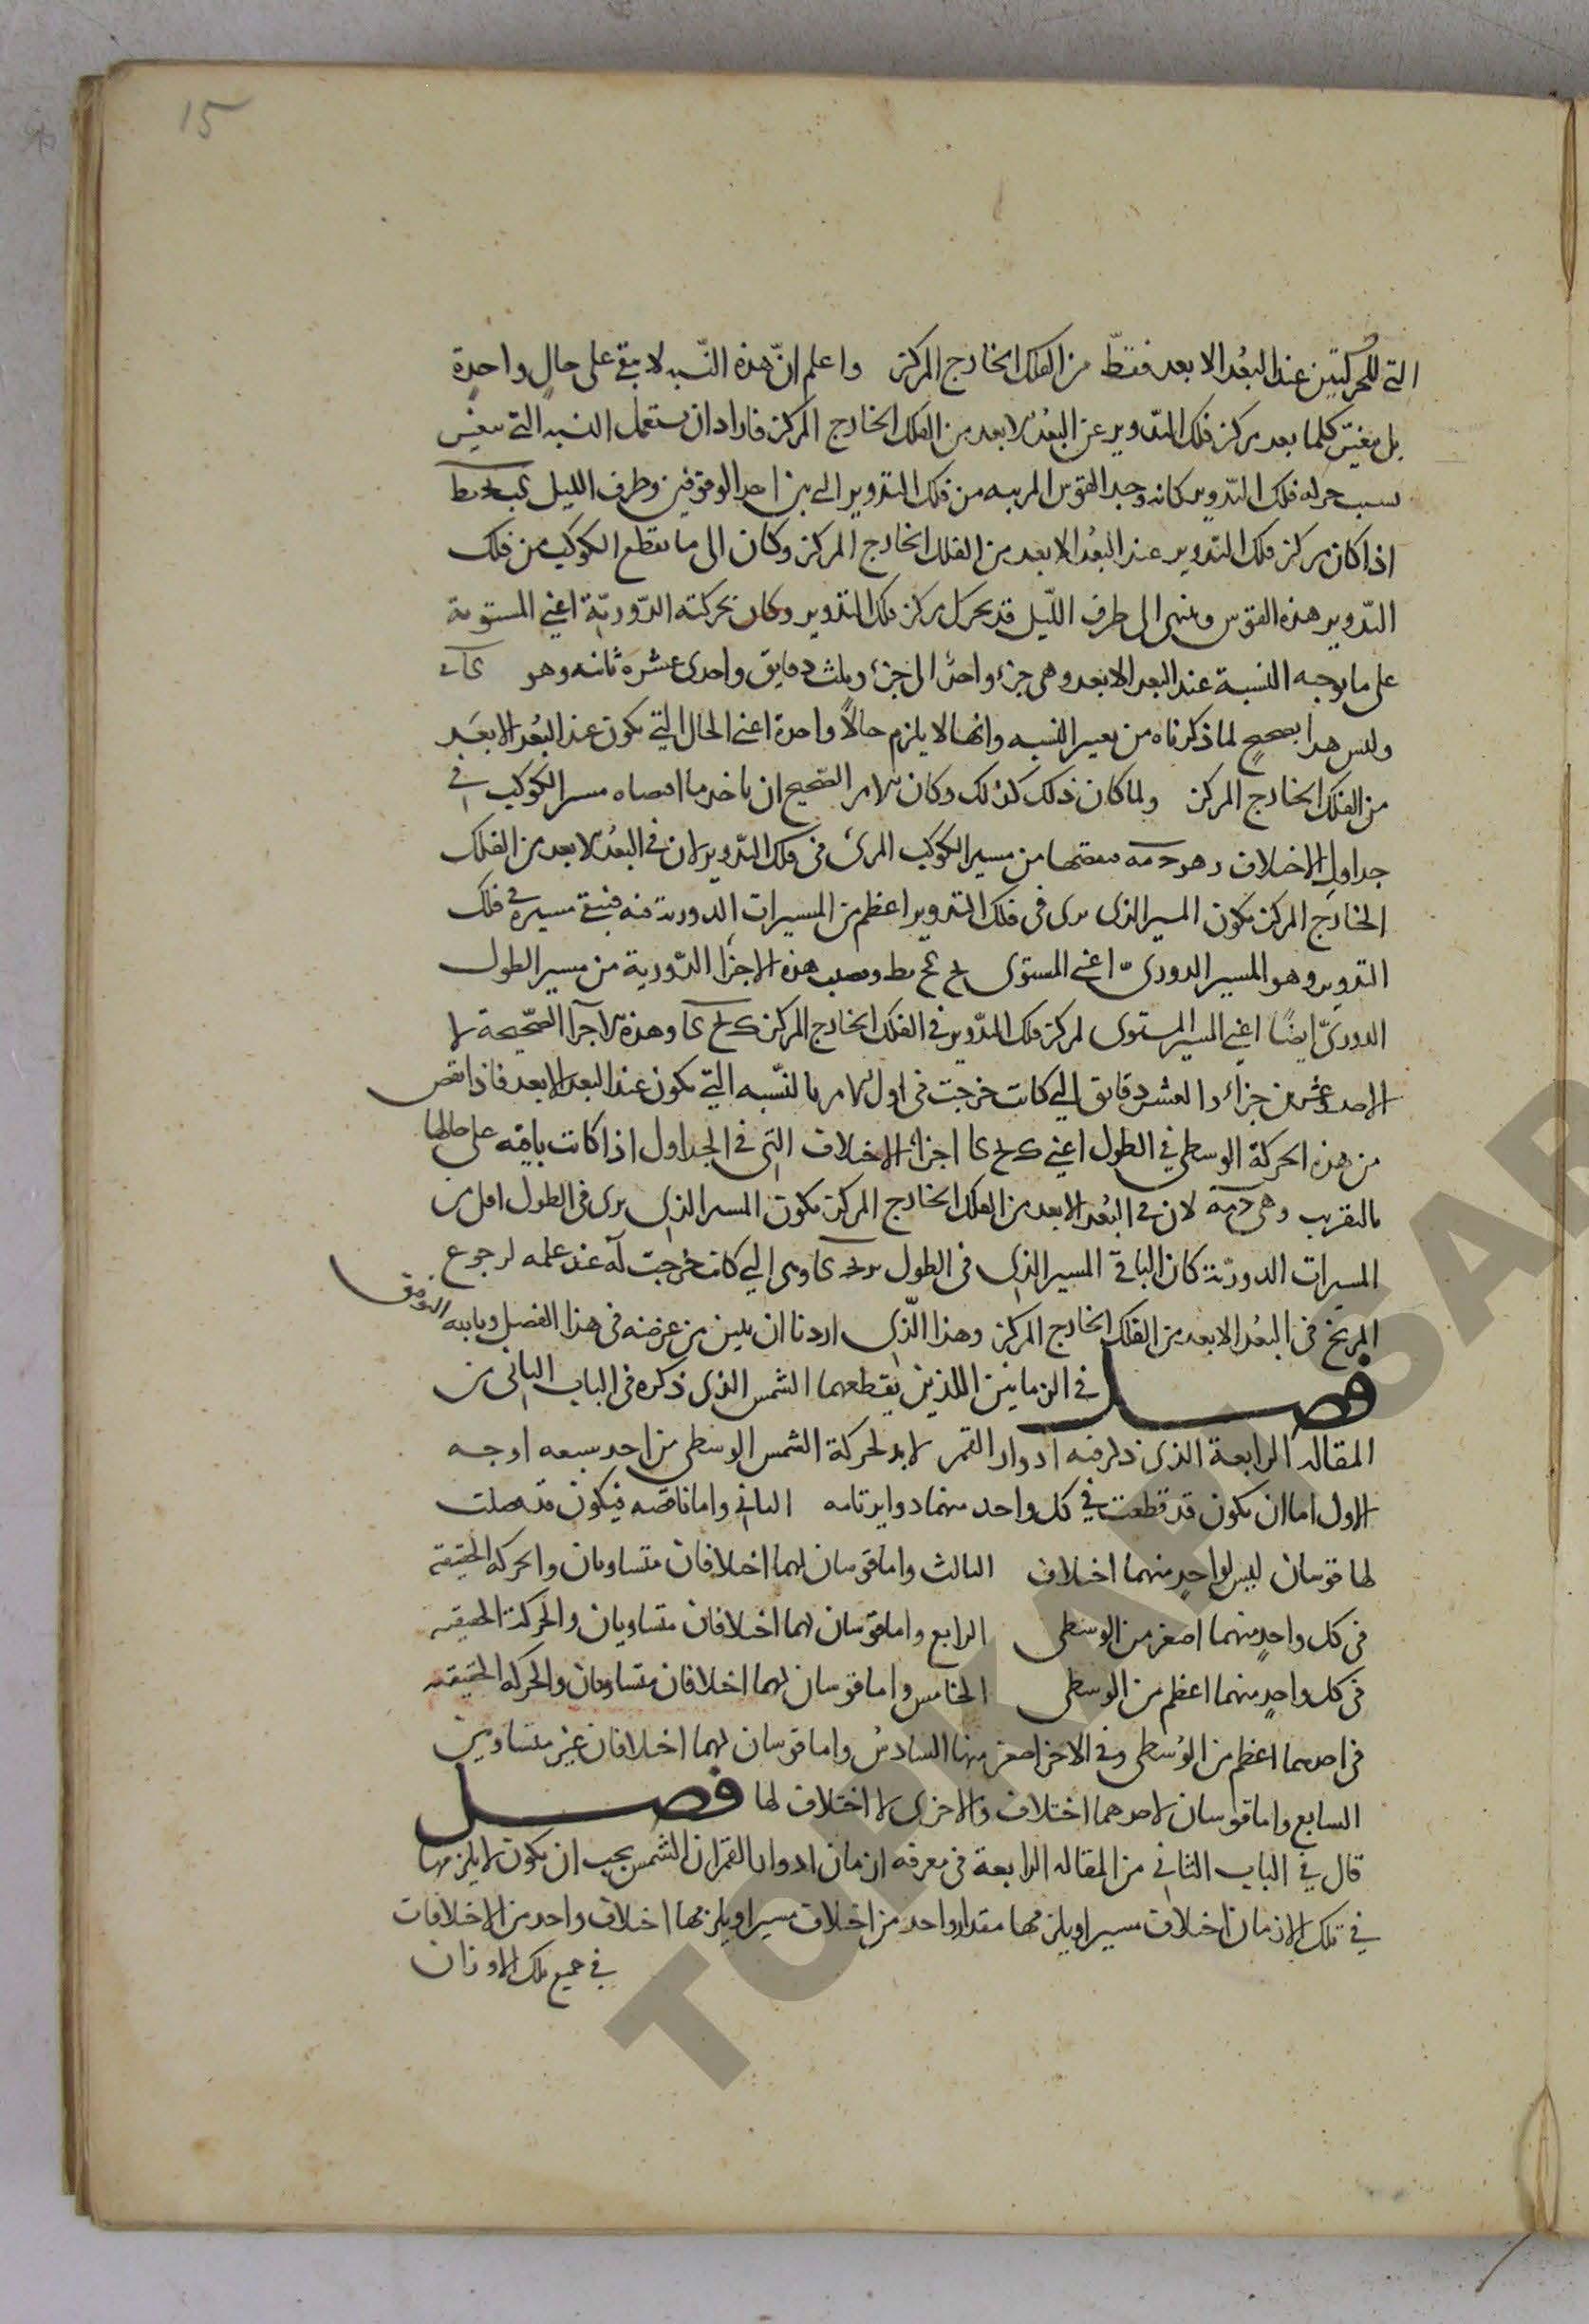 15
التي للحركتين عند البُعد الابعد فقط من الفلك الخارج المركز واعلم انّ هذه النّسبه لا تبقى على حالٍ واحدة
بل تتغيّر كلما بعد مركز فلك التدوير عن البُعد الابعد من الفلك الخارج المركز فاراد ان يستعمل النسبه التي تتغير
بسبب حركه فلك التدوير كانه وجد القوس المرييه من فلك التدوير التي بين احد الوقوفين وطرف الليل
اذا كان مركز فلك التدوير عند البُعد الابعد من الفلك الخارج المركز وكان الى ما يقطع الكوكب من فلك
التدوير هذه القوس وينتهي الى طرف اللّيل قد تحرك مركز فلك التدوير وكان بحركته الدّوريّة اعني المستوية
على ما يوجبه النسبة عند البعد الابعد وهي جزء واحد الى جزء وثلث دقايق واحدى عشره ثانيه وهو
وليس هذا بصحيح لما ذكرناه من تغير النسبه وانها لا يلزم حالاً واحدة اعني الحال التي تكون عند البُعد الابعد
من الفلك الخارج المركز ولما كان ذلك كذلك وكان الامر الصّحيح ان ناخذ ما اقتضاه مسير الكوكب في
جداول الاختلاف وهو فنقصها من مسير الكوكب المرئ في فلك التدوير لان في البُعد الابعد من الفلك
الخارج المركز يكون المسير الذي يرى في فلك التدوير اعظم من المسيرات الدورية فيه فيبقى مسيره في فلك
التدوير وهو المسير الدوريّ اعني المستوى هذه الاجزا الدّورية من مسير الطول
الدوريّ ايضًا اعني المسير المستوى لمركز فلك التدوير في الفلك الخارج المركز وهذه الاجزآ الصّحيحة لا
الاحد وعشرين جزاء والعشر دقايق التي كانت خرجت في اول الامر بالنّسبه التي تكون عند البعد الابعد فاذا نقص
من هذه الحركة الوسطى في الطول اعني اجزاء الاختلاف التي في الجداول اذا كانت باقيه على حالها
بالتقريب وهي لان في البُعد الابعد من الفلك الخارج المركز يكون المسير الذي يرى في الطول اقل من
المسيرات الدوريّة كان الباقي المسير الذي في الطول وهي التي كانت خرجت له عند عمله لرجوع
المريخ في البُعد الابعد من الفلك الخارج المركز وهذا الّذي اردنا ان نبين من غرضه في هذا الفصل وبالله التوفيق
فصل في الزمانين اللذين يقطعهما الشمس الذي ذكره في الباب الثاني من
المقاله الرابعة الذي ذكر فيه ادوار القمر لابد لحركة الشمس الوسطى من احد سبعه اوجه
الاول اما ان تكون قد قطعت في كل واحد منهما دواير تامه الثاني واما ناقصه فيكون قد فضلت
لها قوسان ليس لواحدٍ منهما اختلاف الثالث واما قوسان لهما اختلافان متساويان والحركه الحقيقيه
في كل واحدٍ منهما اصغر من الوسطى الرابع واما قوسان لهما اختلافان متساويان والحركة الحقيقيه
في كل واحدٍ منهما اعظم من الوسطى الخامس واما قوسان لهما اختلافان متساويان والحركه الحقيقيه
في احدهما اعظم من الوُسطى وفي الاخر اصغر منها السادسُ واما قوسان لهما اختلافان غير متساويين
السابع واما قوسان لاحدهما اختلاف والاخرى لا اختلاف لها فصل
قال في الباب الثاني من المقاله الرابعة في معرفه ازمان ادوار القمر ان الشمس يجب ان يكون لا يلزمها
في تلك الازمان اختلاف مسير او يلزمها مقدار واحد من اختلاف مسير او يلزمها اختلاف واحد من الاختلافات
في جميع تلك الاوزان
TOPKAPI SAR